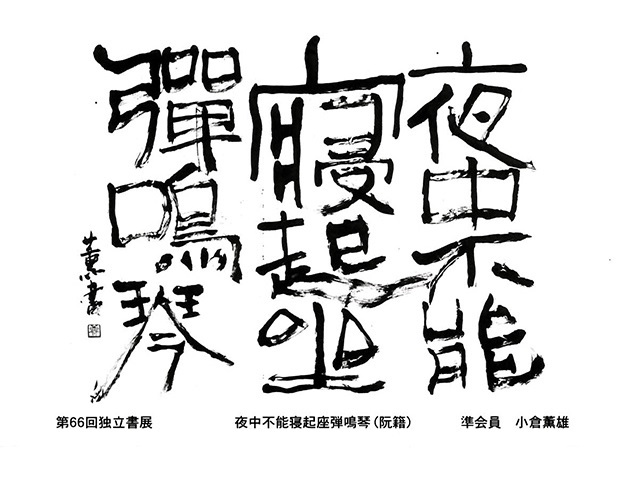 夜中不能
寝起坐
彈鳴琴
薫書
第66回独立書展
夜中不能寝起座弾鳴琴（阮籍）
準会員　小倉薫雄